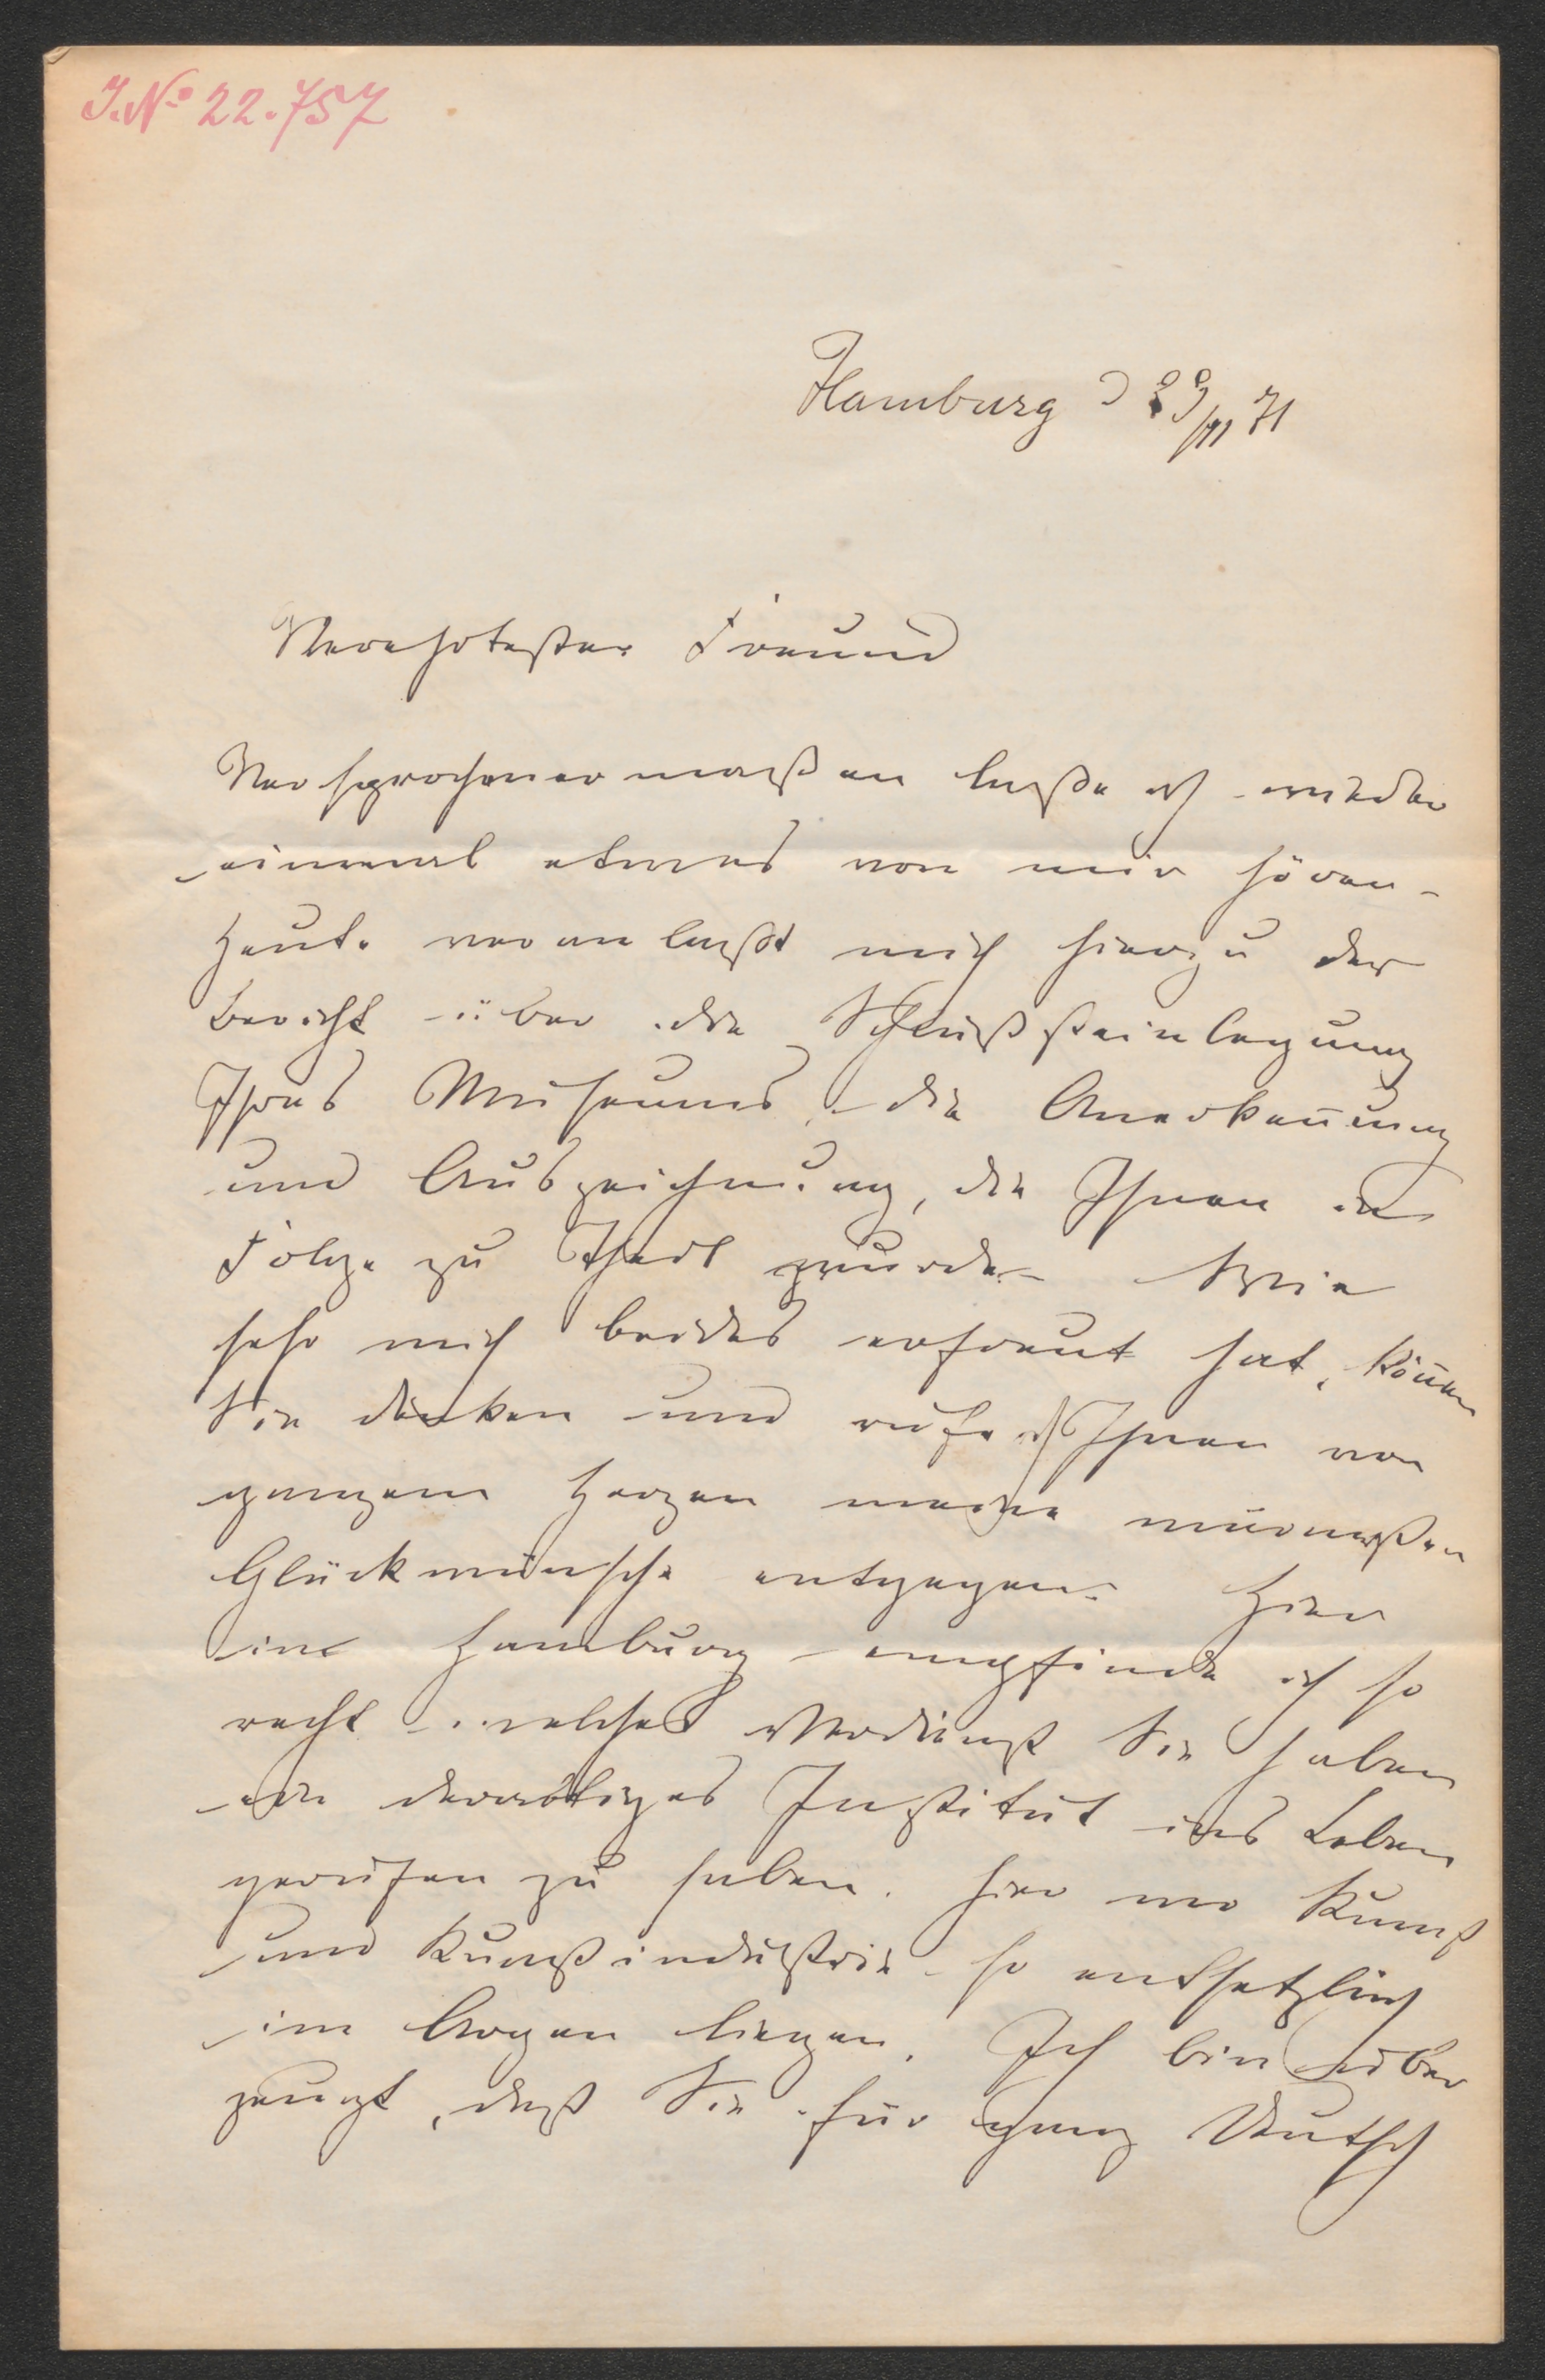 I.No 22.757
Hamburg d 29/XI 71
Verehrtester Freund
Versprochenermaßen lasse ich wieder
einmal etwas von mir hören –
Heute veranlaßt mich hierzu der
Bericht über die Schlußsteinlegung
Ihres Museums, die Anerkennung
und Auszeichnung, die Ihnen in
Folge zu Theil wurde – Wie
sehr mich beides erfreut hat, können
Sie denken und rufe ich Ihnen von
ganzem Herzen meine wärmsten
Glückwünsche entgegen. Hier
in Hamburg empfinde ich so
recht welches Verdienst Sie haben
ein derartiges Institut ins Leben
gerufen zu haben. hier wo Kunst
und Kunstindustrie so entsetzlich
im Argen liegen. Ich bin über
zeugt, daß Sie für ganz Deutsch